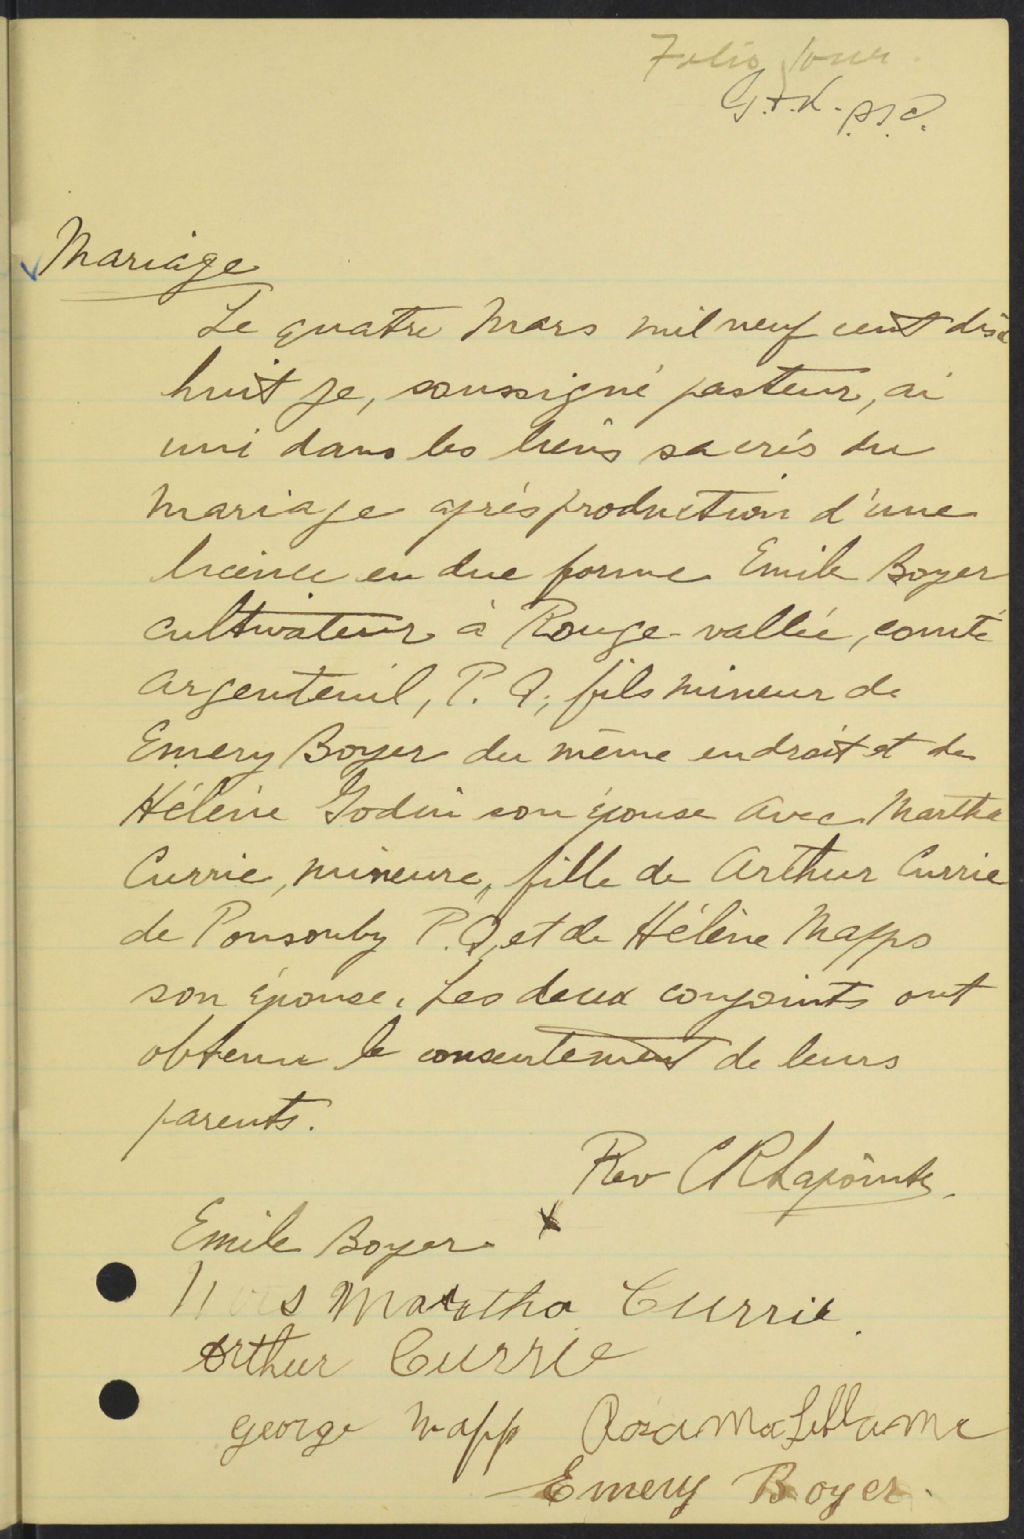 Folio four.
Mariage
Le quatre Mars mil neuf cent dix
huit je, soussigné pasteur, ai
uni dans les liens sacrés du
Mariage après production d'une
licence en due forme Emile Boyer
cultivateur à Rouge-vallée, comté
Argenteuil, P. Q., fils mineur de
Emery Boyer du même endroit et de
Hélène Godin son épouse avec Martha
Currie, mineure, fille de Arthur Currie
de Ponsonby P.Q, et de Hélène Mapps
son épouse. Les deux conjoints ont
obtenu le consentement de leurs
parents.
Rev CR Lapointe.
Emile Boyer x
Martha Currie.
Arthur Currie
george Mapp
Emery Boyer.